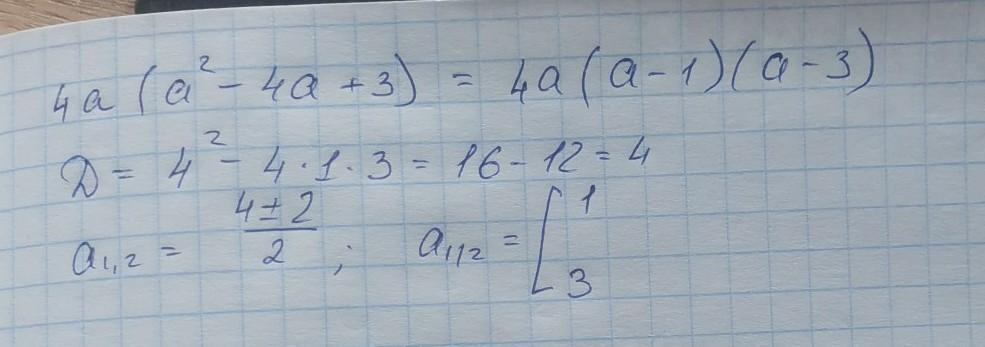 4a (a² - 4a + 3) = 4a (a - 1)(a - 3)
D = 4² - 4 · 1 · 3 = 16 - 12 = 4
a₁,₂ = (4 ± 2)/2 ; a₁,₂ = [ 1 3